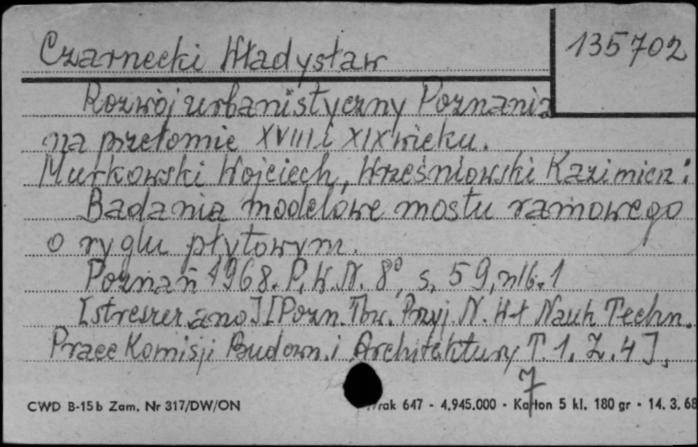 Czarnecki Władysław
135702
Rozwój urbanistyczny Poznania
na przełomie XVIII i XIX wieku.
Murkowski Wojciech, Wrześniowski Kazimierz:
Badania modelowe mostu ramowego
o ryglu płytowym.
Poznań 1968. P.W.N. 8°, s. 59, nlb. 1
[streszcz. ang.] [Pozn. Tow. Przyj. N. Wt Nauk Techn.
Prace Komisji Budown. i Architektury T. 1, Z. 4].
7
CWD B-15b Zam. Nr 317/DW/ON
rak 647 - 4.945.000 - Karton 5 kl. 180 gr - 14. 3. 68